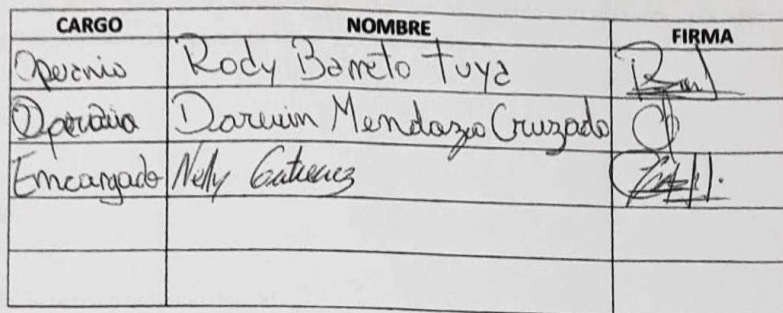 CARGO NOMBRE FIRMA
Operario Rody Barreto Tuya
Operario Darwin Mendoza Cruzado
Encargado Nelly Gutierrez